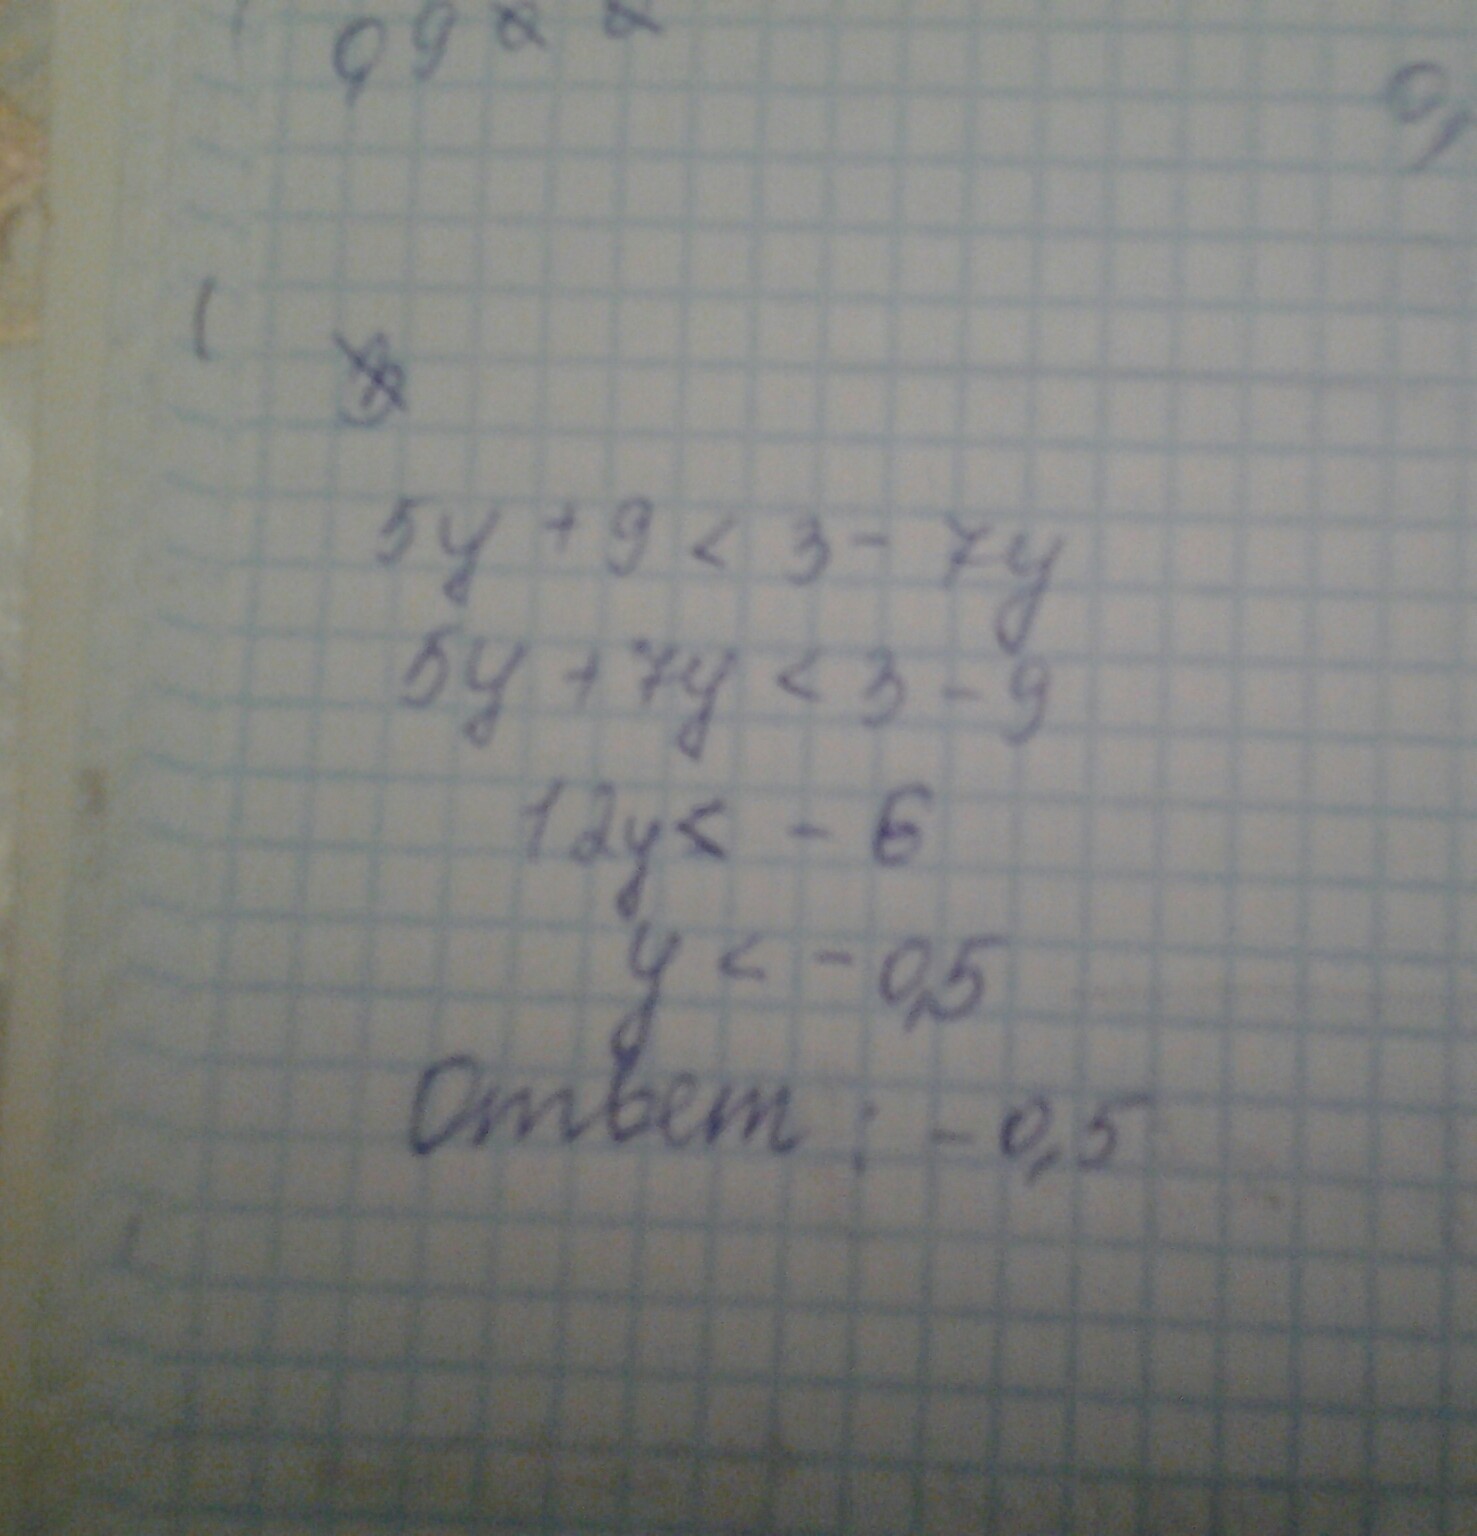 5y + 9 < 3 - 7y
5y + 7y < 3 - 9
12y < - 6
y < - 0,5
Ответ : - 0,5